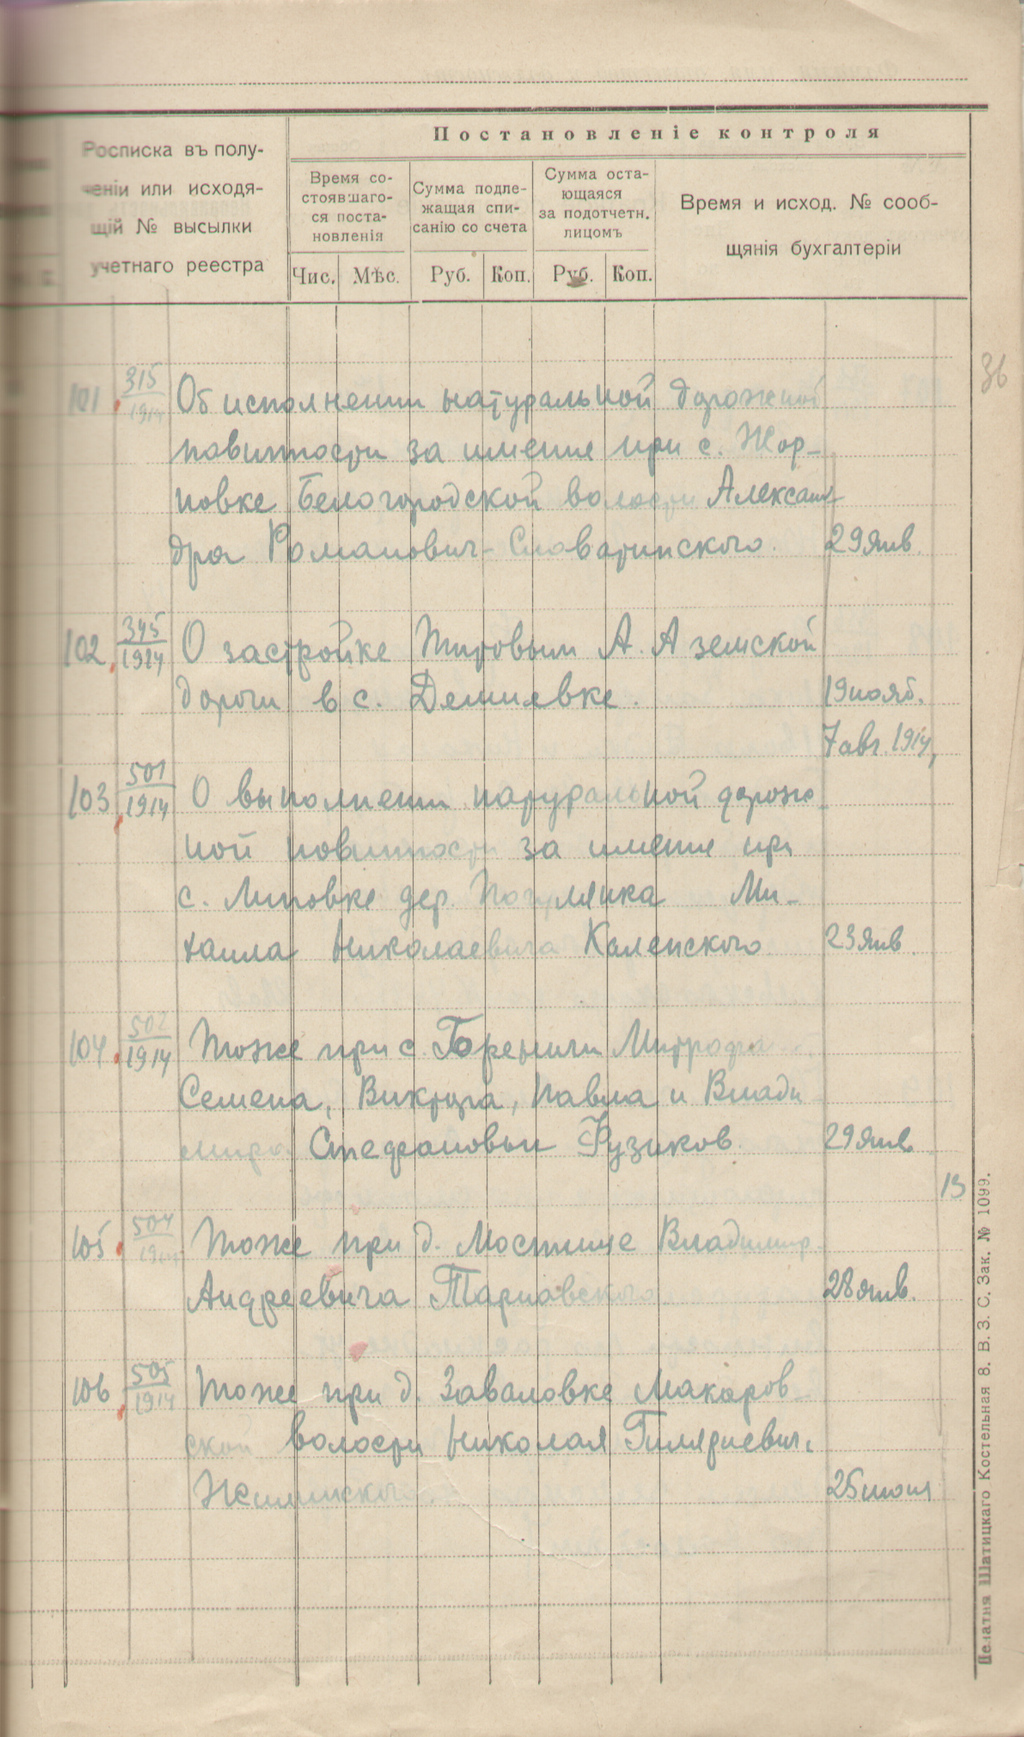 Постановленіе контроля
Росписка въ полу-
ченіи или исходя-
щій № высылки
учетнаго реестра
Время со-
стоявшаго-
ся поста-
новленія
Сумма подле-
жащая спи-
санію со счета
Сумма оста-
ющаяся
за подотчетн.
лицомъ
Время и исход. № сооб-
щянія бухгалтеріи
Чис. Мѣс. Руб. Коп. Руб. Коп.
36
101. 315/1914 Об исполнении натуральной дорожной
повинности за имение при с. Жор-
новке Белогородской волости Алексан-
дра Романович-Словатинского. 29 янв.
102. 345/1914 О застройке Титовым А. А земской
дороги в с. Демиевке. 19 нояб.
7 авг. 1914,
103. 501/1914 О выполнении натуральной дорож-
ной повинности за имение при
с. Липовке дер. Ми-
хаила Николаевича Каленского 23 янв
104. 502/1914 Тоже при с. Гореничи
Семена, Виктора, Павла и Влади
мира Стефановы Фузиков. 29 янв
13
105. 504/1914 Тоже при д. Мостище Владимир
Андреевича Тарнавского 28 янв.
106. 505/1914 Тоже при д. Заваловке Макаров-
ской волости Николая
25 июня
Печатня Шатицкаго Костельная 8. В. З. С. Зак. № 1099.